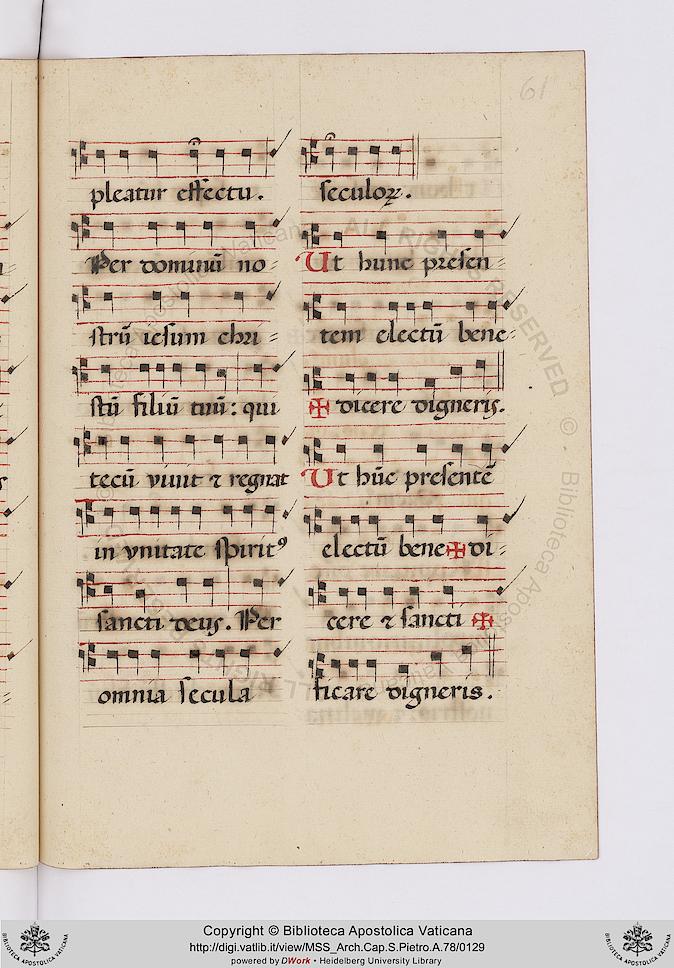 61
pleatur effectu.
Per dominū no=
strū iesum chri=
stū filiū tuū: qui
tecū viuit ⁊ regnat
in vnitate spiritꝰ
sancti deus. Per
omnia secula
seculoꝝ.
Ut hunc presen=
tem electū bene=
✠ dicere digneris.
Ut hūc presentē
electū bene✠di=
cere ⁊ sancti ✠
ficare digneris.
Copyright © Biblioteca Apostolica Vaticana
http://digi.vatlib.it/view/MSS_Arch.Cap.S.Pietro.A.78/0129
powered by DWork • Heidelberg University Library
BIBLIOTECA APOSTOLICA VATICANA
BIBLIOTECA APOSTOLICA VATICANA